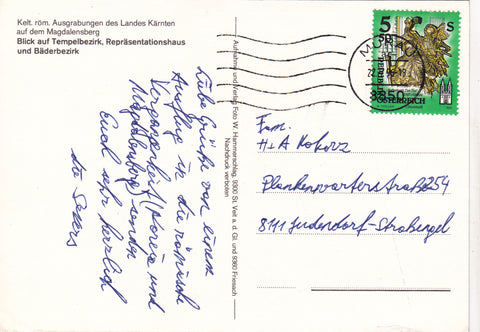 Kelt. röm. Ausgrabungen des Landes Kärnten
auf dem Magdalensberg
Blick auf Tempelbezirk, Repräsentationshaus
und Bäderbezirk
Liebe Grüße von einem
Ausflug in die römische
Vergangenheit (Noreia und
Magdalensberg) senden
Euch sehr herzlich
die
Aufnahme und Verlag Foto W. Hammerschlag, 9300 St. Veit a. d. Gl. und 9360 Friesach
Nachdruck verboten
5 S
REPUBLIK
ÖSTERREICH
8850
Fam.
H+A
Plankenwarterstraße 254
8111 Judendorf-Straßengel